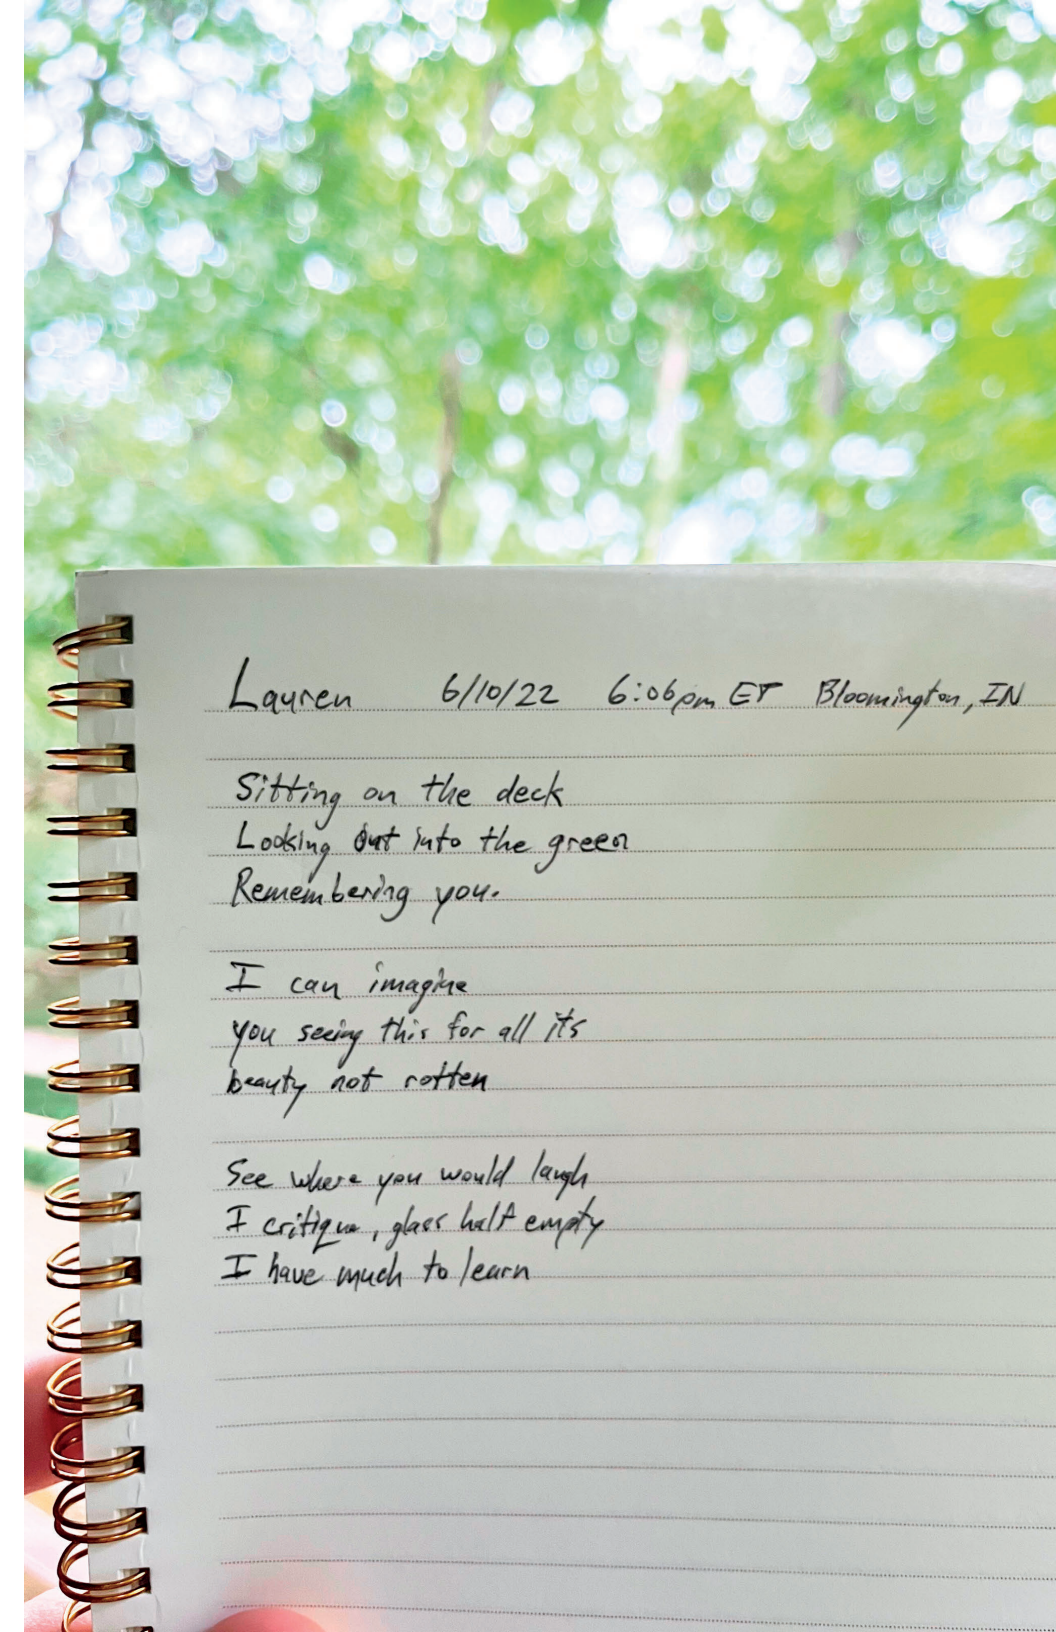 Lauren 6/10/22 6:06pm ET Bloomington, IN
Sitting on the deck
Looking out into the green
Remembering you.
I can imagine
you seeing this for all its
beauty not rotten
See where you would laugh
I critique, glass half empty
I have much to learn